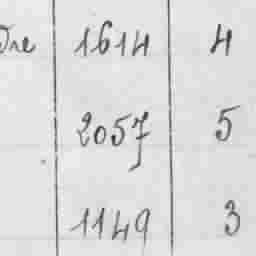 1614 4
2057 5
1149 3